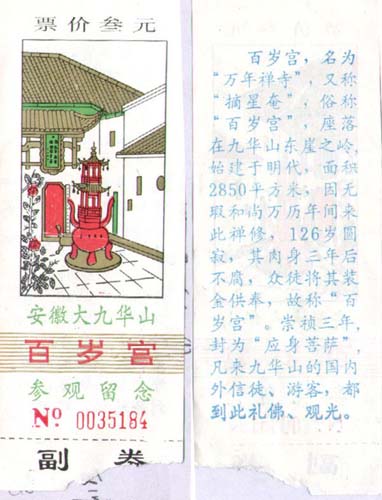 票价叁元
安徽大九华山
百岁宫
参观留念
No 0035184
副券
百岁宫，名为
“万年禅寺”，又称
“摘星庵”，俗称
“百岁宫”，座落
在九华山东崖之岭，
始建于明代，面积
2850平方米，因无
瑕和尚万历年间来
此禅修，126岁圆
寂，其肉身三年后
不腐，众徒将其装
金供奉，故称“百
岁宫”。崇祯三年，
封为“应身菩萨”，
凡来九华山的国内
外信徒、游客，都
到此礼佛、观光。